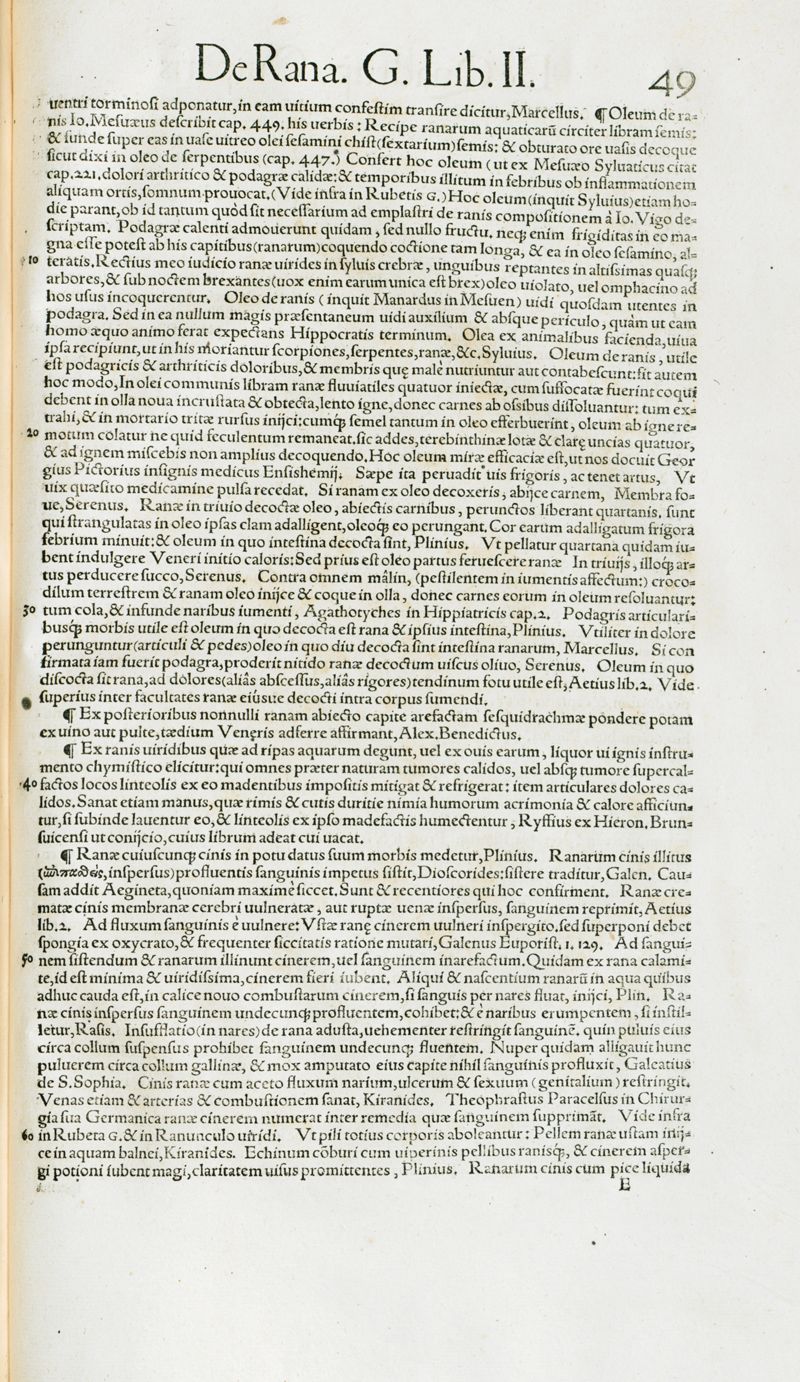 De Rana. G. Lib. II. 49
uentri torminosi adponatur, in eam uitium confestim transire dicitur, Marcellus. ¶ Oleum de ra-
nis Io. Mesuæus describit cap. 449. his uerbis: Recipe ranarum aquaticarũ circiter libram semis:
& iunde super eas in uase uitreo olei sesamini chist (sextarium) semis: & obturato ore uasis decoque
sicut dixi in oleo de serpentibus (cap. 447.) Confert hoc oleum (ut ex Mesuæo Syluaticus citat
cap. 221. dolori arthritico & podagræ calidæ: & temporibus illitum in febribus ob inflammationem
aliquam ortis, somnum prouocat. (Vide infra in Rubetis G.) Hoc oleum (inquit Syluius) etiam ho-
die parant, ob id tantum quòd sit necessarium ad emplastri de ranis compositionem à Io. Vigo de-
scriptam. Podagræ calenti admouerunt quidam, sed nullo fructu. neq; enim frigiditas in eo ma-
gna esse potest ab his capitibus (ranarum) coquendo coctione tam longa, & ea in oleo sesamino, al-
10 teratis. Rectius meo iudicio ranæ uirides in syluis crebræ, unguibus reptantes in altissimas quasq;
arbores, & sub noctem brexantes (uox enim earum unica est brex) oleo uiolato, uel omphacino ad
hos usus incoquerentur. Oleo de ranis (inquit Manardus in Mesuen) uidi quosdam utentes in
podagra. Sed in ea nullum magis præsentaneum uidi auxilium & absque periculo, quàm ut eam
homo æquo animo ferat expectans Hippocratis terminum. Olea ex animalibus facienda, uiua
ipsa recipiunt, ut in his moriantur scorpiones, serpentes, ranæ, &c. Syluius. Oleum de ranis, utile
est podagricis & arthriticis doloribus, & membris quę malè nutriuntur aut contabescunt: fit autem
hoc modo, In olei communis libram ranæ fluuiatiles quatuor iniectæ, cum suffocatæ fuerint coqui
debent in olla noua incrustata & obtecta, lento igne, donec carnes ab ossibus dissoluantur: tum ex-
trahi, & in mortario tritæ rursus inijci: cumq́; semel tantum in oleo efferbuerint, oleum ab igne re-
20 motum colatur ne quid feculentum remaneat. sic addes, terebinthinæ lotæ & clarę uncias quatuor,
& ad ignem miscebis non amplius decoquendo. Hoc oleum miræ efficaciæ est, ut nos docuit Geor
gius Pictorius insignis medicus Ensishemij. Sæpe ita peruadit uis frigoris, ac tenet artus, Vt
uix quæsito medicamine pulsa recedat. Si ranam ex oleo decoxeris, abijce carnem, Membra fo-
ue, Serenus. Ranæ in triuio decoctæ oleo, abiectis carnibus, perunctos liberant quartanis. sunt
qui strangulatas in oleo ipsas clam adalligent, oleoq́; eo perungant. Cor earum adalligatum frigora
febrium minuit: & oleum in quo intestina decocta sint, Plinius. Vt pellatur quartana quidam iu-
bent indulgere Veneri initio caloris: Sed prius est oleo partus feruescere ranæ In triuijs, illoq́; ar-
tus perducere succo, Serenus. Contra omnem mâlin, (pestilentem in iumentis affectum:) croco-
dilum terrestrem & ranam oleo inijce & coque in olla, donec carnes eorum in oleum resoluantur:
30 tum cola, & infunde naribus iumenti, Agathotyches in Hippiatricis cap. 2. Podagris articulari-
busq́; morbis utile est oleum in quo decocta est rana & ipsius intestina, Plinius. Vtiliter in dolore
perunguntur (articuli & pedes) oleo in quo diu decocta sint intestina ranarum, Marcellus. Si con
firmata iam fuerit podagra, proderit nitido ranæ decoctum uiscus oliuo, Serenus. Oleum in quo
discocta sit rana, ad dolores (aliâs abscessus, aliâs rigores) tendinum fotu utile est, Aetius lib. 2. Vide
superius inter facultates ranæ eiúsue decocti intra corpus sumendi.
¶ Ex posterioribus nonnulli ranam abiecto capite arefactam sesquidrachmæ pondere potam
ex uino aut pulte, tædium Venęris adferre affirmant, Alex. Benedictus.
¶ Ex ranis uiridibus quæ ad ripas aquarum degunt, uel ex ouis earum, liquor ui ignis instru-
mento chymistico elicitur: qui omnes præter naturam tumores calidos, uel absq; tumore supercal-
40 factos locos linteolis ex eo madentibus impositis mitigat & refrigerat: item articulares dolores ca-
lidos. Sanat etiam manus, quæ rimis & cutis duritie nimia humorum acrimonia & calore afficiun-
tur, si subinde lauentur eo, & linteolis ex ipso madefactis humectentur, Ryffius ex Hieron. Brun-
suicensi ut conijcio, cuius librum adeat cui uacat.
¶ Ranæ cuiuscunq; cinis in potu datus suum morbis medetur, Plinius. Ranarum cinis illitus
( inspersus) profluentis sanguinis impetus sistit, Dioscorides: sistere traditur, Galen. Cau-
sam addit Aegineta, quoniam maximè siccet. Sunt & recentiores qui hoc confirment. Ranæ cre-
matæ cinis membranæ cerebri uulneratæ, aut ruptæ uenæ inspersus, sanguinem reprimit, Aetius
lib. 2. Ad fluxum sanguinis è uulnere: Vstæ ranę cinerem uulneri inspergito. sed superponi debet
spongia ex oxycrato, & frequenter siccitatis ratione mutari, Galenus Euporist. 1. 129. Ad sangui-
50 nem sistendum & ranarum illinunt cinerem, uel sanguinem inarefactum. Quidam ex rana calami-
te, id est minima & uiridissima, cinerem fieri iubent. Aliqui & nascentium ranarũ in aqua quibus
adhuc cauda est, in calice nouo combustarum cinerem, si sanguis per nares fluat, inijci, Plin. Ra-
næ cinis inspersus sanguinem undecunq; profluentem, cohibet: & è naribus erumpentem, si instil-
letur, Rasis. Insufflatio (in nares) de rana adusta, uehementer restringit sanguinẽ. quin puluis eius
circa collum suspensus prohibet sanguinem undecunq; fluentem. Nuper quidam alligauit hunc
puluerem circa collum gallinæ, & mox amputato eius capite nihil sanguinis profluxit, Galeatius
de S. Sophia. Cinis ranæ cum aceto fluxum narium, ulcerum & sexuum (genitalium) restringit.
Venas etiam & arterias & combustionem sanat, Kiranides. Theophrastus Paracelsus in Chirur-
gia sua Germanica ranæ cinerem numerat inter remedia quæ sanguinem supprimãt. Vide infra
60 in Rubeta G. & in Ranunculo uiridi. Vt pili totius corporis aboleantur: Pellem ranæ ustam inij-
ce in aquam balnei, Kiranides. Echinum cõburi cum uiperinis pellibus ranisq́;, & cinerem asper-
gi potioni iubent magi, claritatem uisus promittentes, Plinius. Ranarum cinis cum pice liquida
E